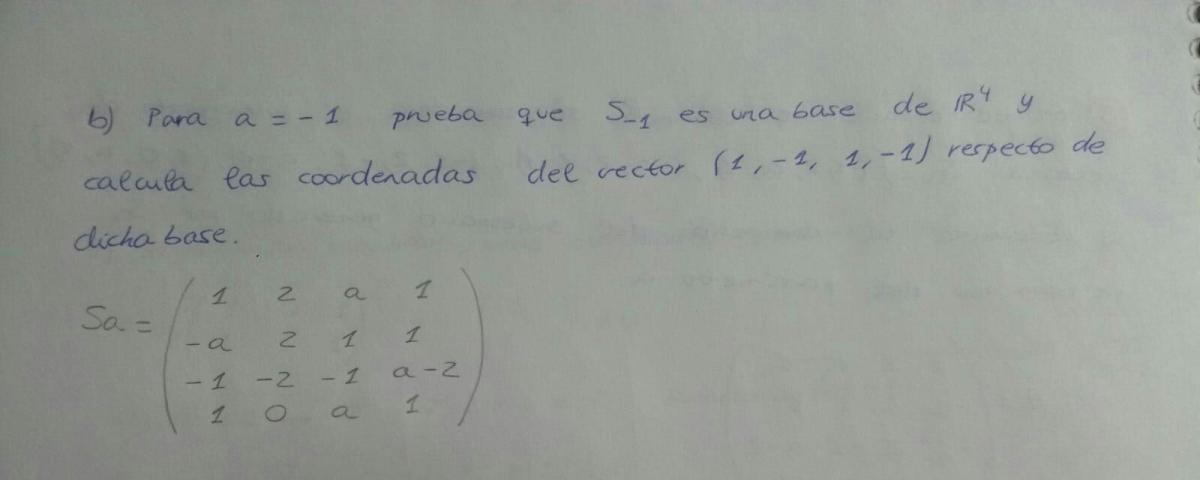 b) Para a = -1 prueba que S₋₁ es una base de ℝ⁴ y
calcula las coordenadas del vector (1, -1, 1, -1) respecto de
dicha base.
1 2 a 1
Sa = -a 2 1 1
-1 -2 -1 a-2
1 0 a 1